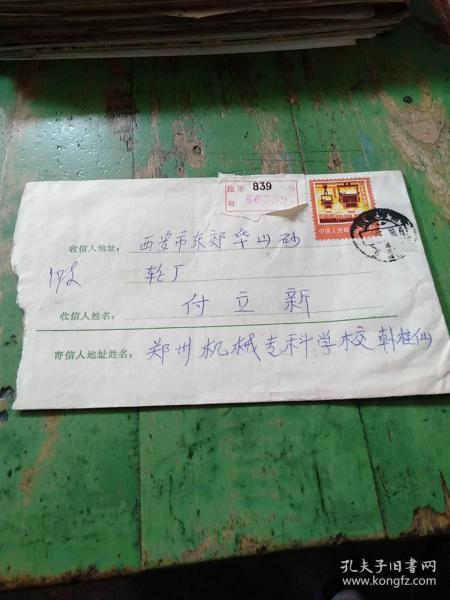 挂 第 839 号
号
中国人民邮政
收信人地址: 西安市东郊华山砂
轮厂
收信人姓名: 付立新
寄信人地址姓名: 郑州机械专科学校 韩桂仙
孔夫子旧书网
www.kongfz.com